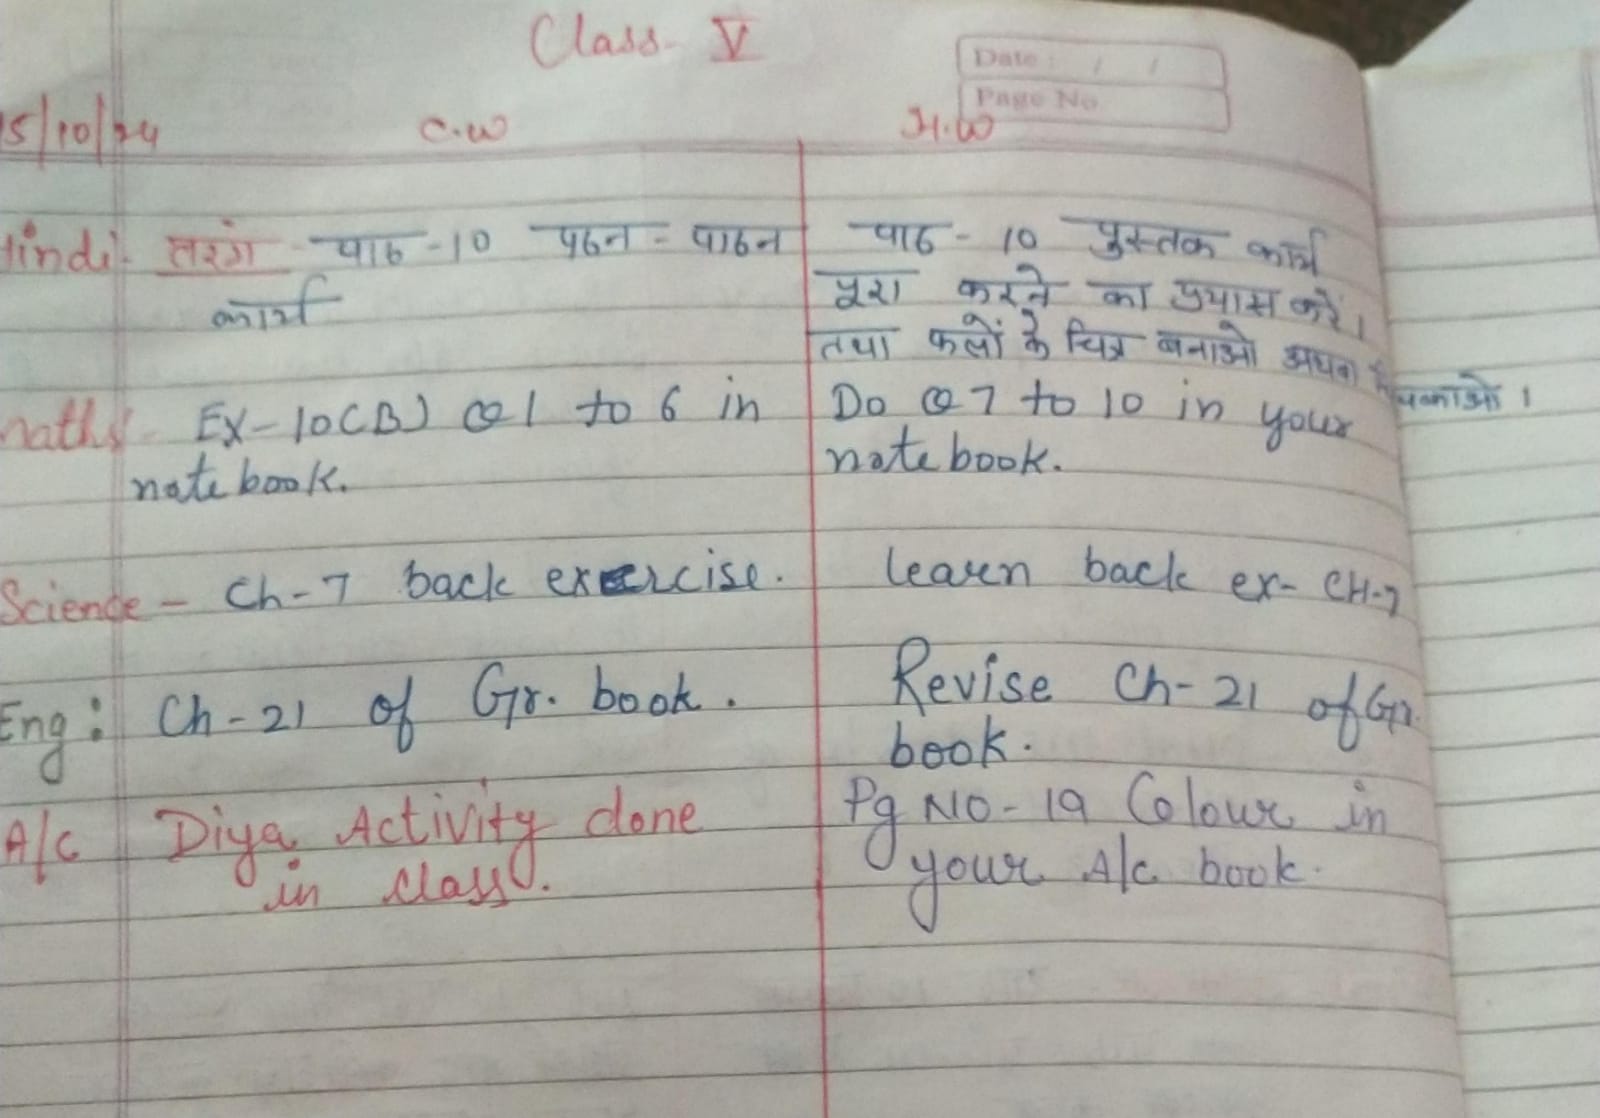 Class- V
Date: / /
Page No.
15/10/24 C.W H.W
Hindi- तरंग - पाठ -10 पठन - पाठन
कार्य
पाठ - 10 पुस्तक कार्य
पूरा करने का प्रयास करें।
तथा फलों के चित्र बनाओ अथवा चिपकाओ।
maths - EX-10(B) Q1 to 6 in
notebook.
Do Q7 to 10 in your
notebook.
Science - Ch-7 back exercise.
learn back ex- CH-7
Eng: Ch-21 of Gr. book.
Revise Ch-21 of Gr.
book.
A/c Diya Activity done
in class.
Pg NO-19 Colour in
your A/c book.